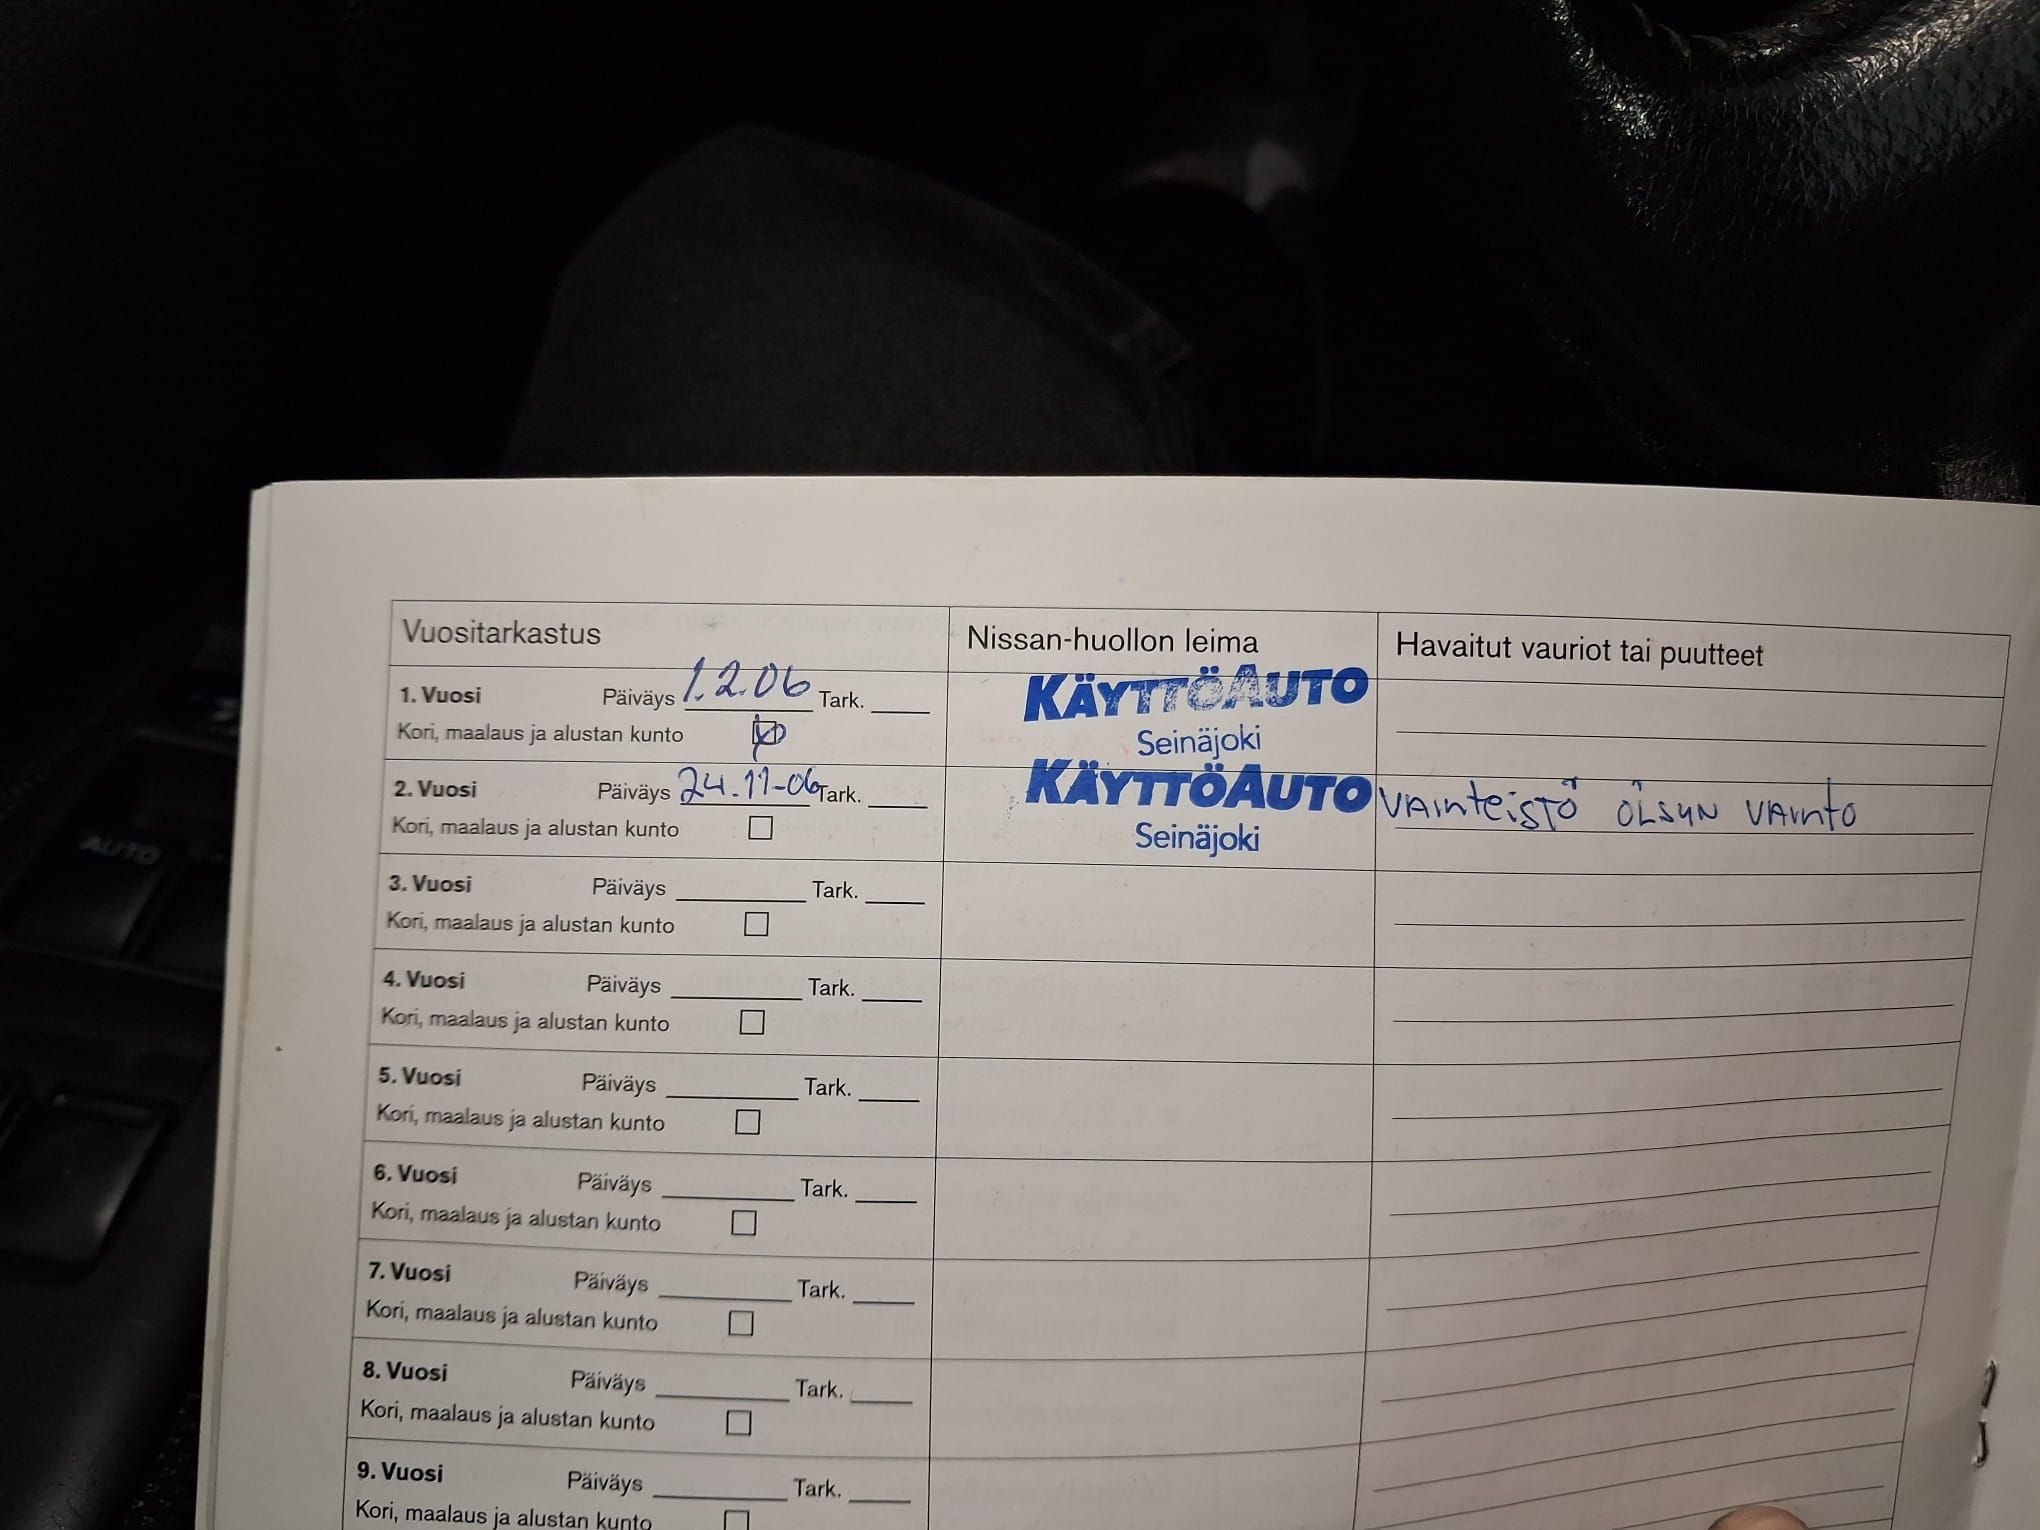 Vuositarkastus Nissan-huollon leima Havaitut vauriot tai puutteet
1. Vuosi Päiväys 1.2.06 Tark.
KÄYTTÖAUTO
Kori, maalaus ja alustan kunto
Seinäjoki
2. Vuosi Päiväys 24.11-06 Tark.
KÄYTTÖAUTO
VAihteistö ÖLJYN VAihto
Kori, maalaus ja alustan kunto
Seinäjoki
3. Vuosi Päiväys Tark.
Kori, maalaus ja alustan kunto
4. Vuosi Päiväys Tark.
Kori, maalaus ja alustan kunto
5. Vuosi Päiväys Tark.
Kori, maalaus ja alustan kunto
6. Vuosi Päiväys Tark.
Kori, maalaus ja alustan kunto
7. Vuosi Päiväys Tark.
Kori, maalaus ja alustan kunto
8. Vuosi Päiväys Tark.
Kori, maalaus ja alustan kunto
9. Vuosi Päiväys Tark.
Kori, maalaus ja alustan kunto
AUTO